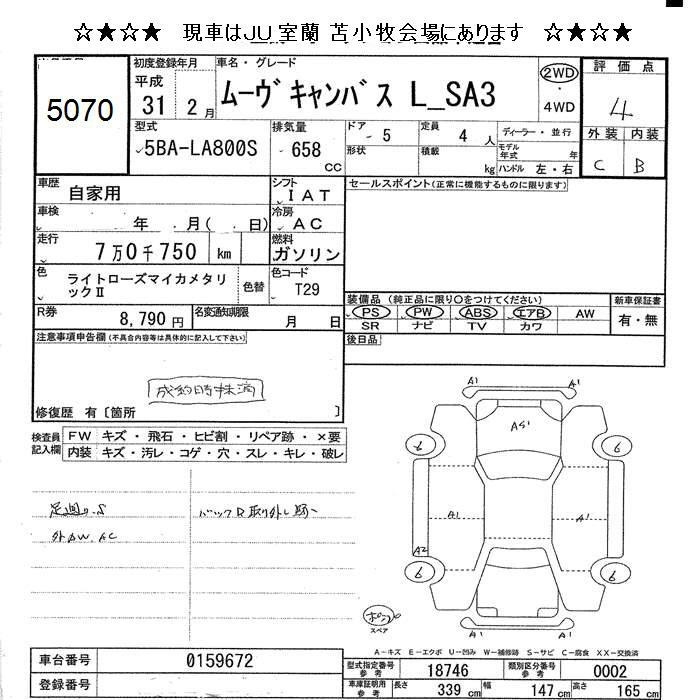 ☆★☆★ 現車はJU室蘭 苫小牧会場にあります ☆★☆★
5070
初度登録年月
平成
31 2月
車名・グレード
ムーヴキャンバス L_SA3
2WD
・
4WD
評価点
4
外装 内装
C B
型式
5BA-LA800S
排気量
658 CC
ドア 5
形状
定員 4人
積載 kg
ディーラー・並行
モデル年式 年
ハンドル 左・右
車歴 自家用
シフト IAT
車検 年 月( 日)
冷房 AC
走行 7万0千750 km
燃料 ガソリン
色 ライトローズマイカメタリックⅡ
色替
色コード T29
R券 8,790円
名変通知期限 月 日
セールスポイント(正常に機能するものに限ります)
装備品(純正品に限り○をつけてください)
新車保証書
PS PW ABS エアB AW
有・無
SR ナビ TV カワ
後日品
注意事項申告欄(不具合内容等は具体的に記入して下さい)
成約時抹消
修復歴 有〔箇所 〕
検査員記入欄
FW キズ・飛石・ヒビ割・リペア跡・×要
内装 キズ・汚レ・コゲ・穴・スレ・キレ・破レ
足廻り.S
外AW.AC
バックD取り外し跡
A1 A1
AS1
6 6
A1 A1
A2
6 6
A1 A1
スペア
A-キズ E-エクボ U-凹み W-補修跡 S-サビ C-腐食 XX-交換済
車台番号 0159672
登録番号
型式指定番号参考 18746
類別区分番号参考 0002
車庫証明用参考 長さ 339 cm 幅 147 cm 高さ 165 cm